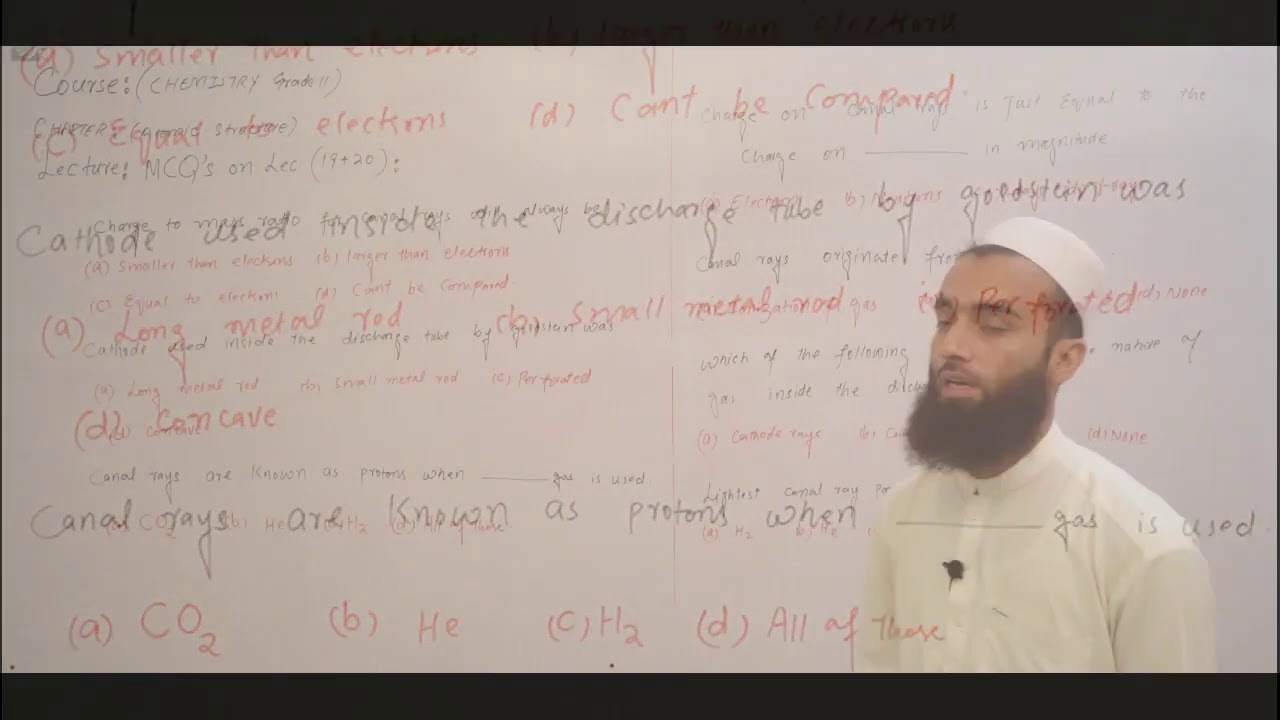 (a) Smaller than electrons (b) larger than electrons
(c) Equal to electrons (d) Cant be Compared
Cathode used inside the discharge tube by goldstein was
(a) Long metal rod (b) Small metal rod (c) Perforated
(d) Concave
Canal rays are Known as protons when ________ gas is used.
(a) CO₂ (b) He (c) H₂ (d) All of these
Course: (CHEMISTRY Grade 11)
Lecture: MCQ's on Lec (19+20):
Charge to mass ratio always be
(a) Smaller than electrons (b) larger than electrons
(c) Equal to electrons (d) Cant be Compared
Cathode used inside the discharge tube by goldstein was
(a) Long metal rod (b) Small metal rod (c) Perforated
(d) Concave
Canal rays are Known as protons when ________ gas is used
(a) CO₂ (b) He H₂ (d) All of these
Charge on Canal rays is Just Equal to the
Charge on ________ in magnitude
Canal rays originate
gas (d) None
which of the following nature of
gas inside the
(a) Cathode rays (b) (d) None
Lightest Canal ray
(a) H₂ (b) He